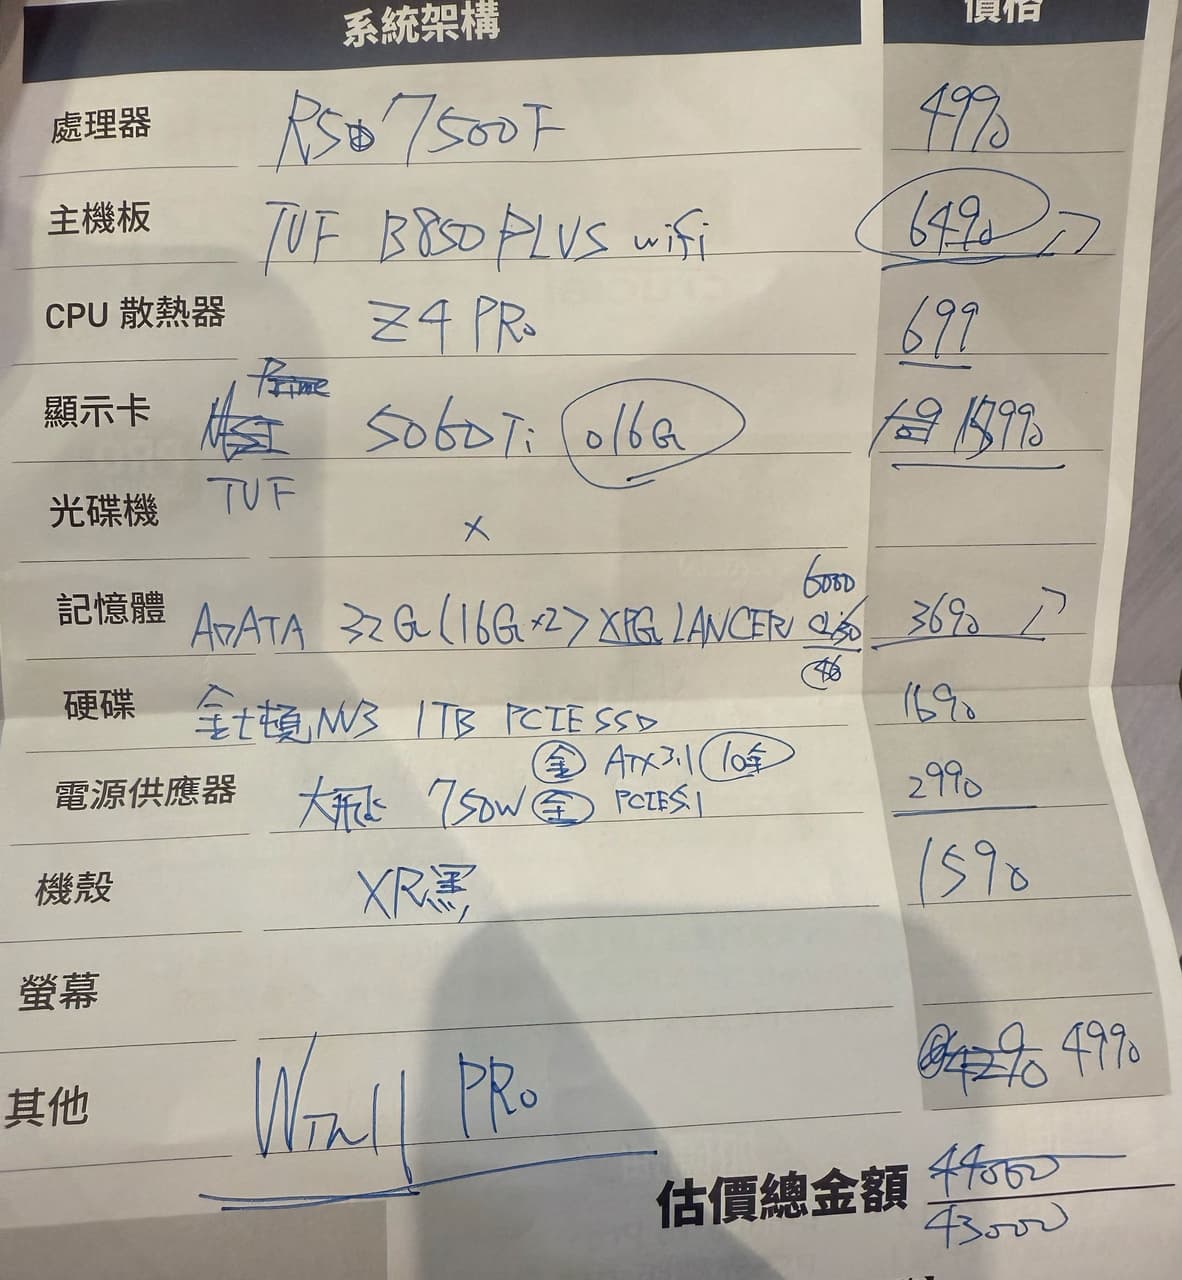 系統架構 價格
處理器 R5 7500F 4990
主機板 TUF B850 PLUS wifi 6490
CPU 散熱器 Z4 PRo 699
Prime
顯示卡 MSI 5060Ti o16G
光碟機 TUF x
6000
記憶體 ADATA 32G(16G×2) XPG LANCER 3690
硬碟 金士頓NV3 1TB PCIE SSD 1690
金 ATX3.1 10年
電源供應器 大飛 750W 金 PCIE5.1 2990
機殼 XR黑 1590
螢幕
其他 Win11 PRo 4990
估價總金額 44000
43000